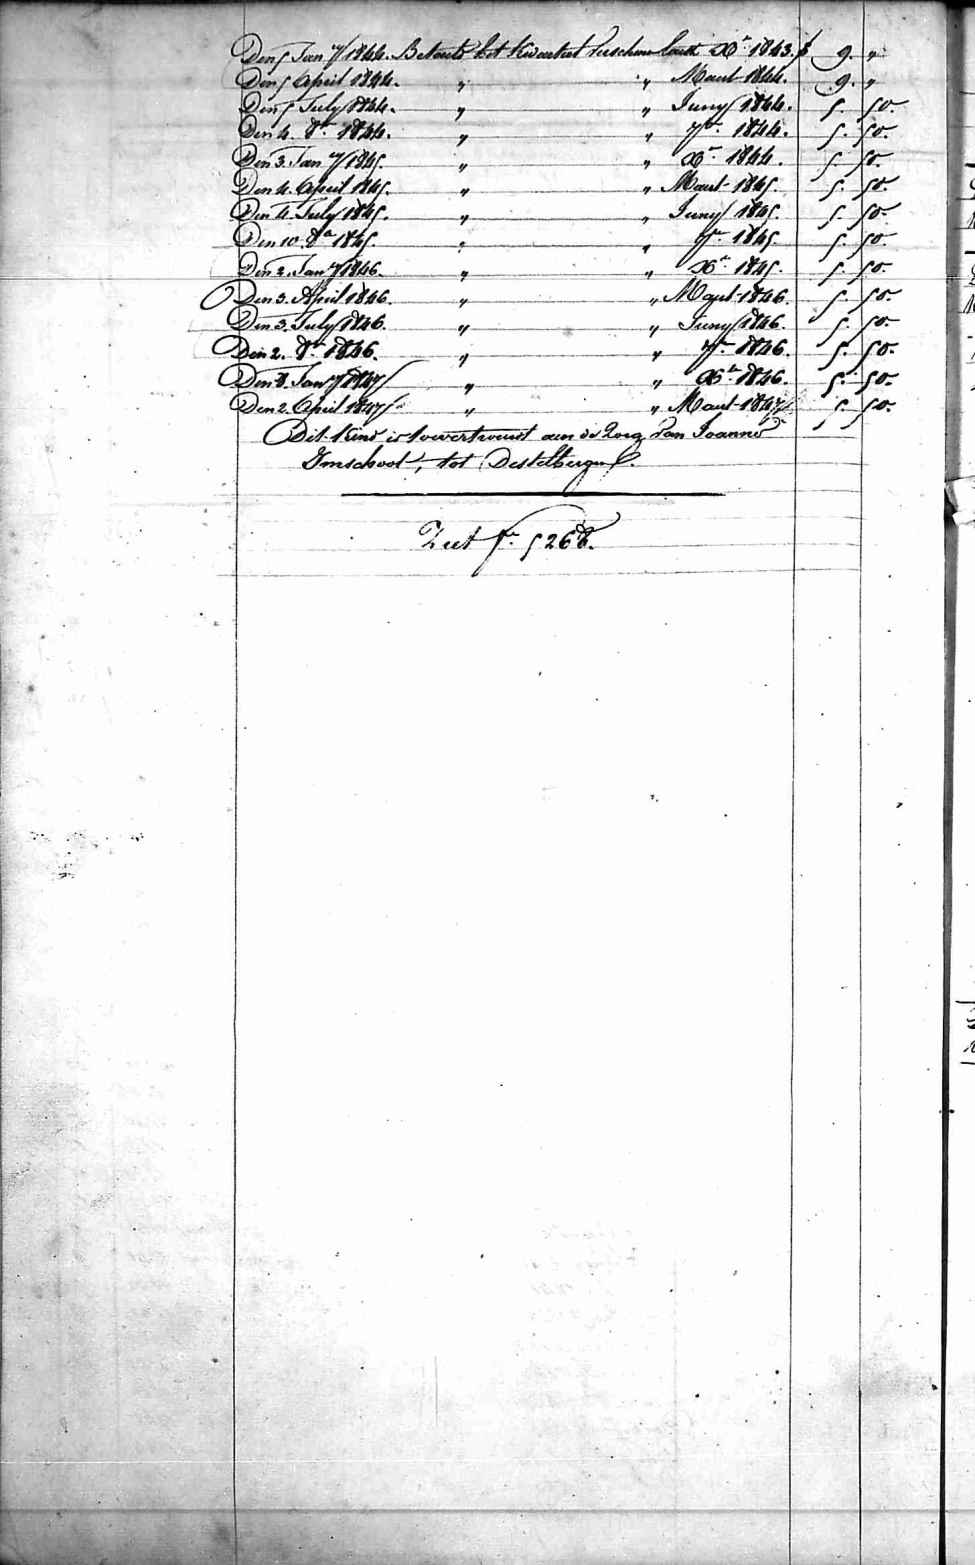 Den 5 Jan^y 1844. Betaeld het Kwartael verschenen laetst X^r 1843. f 9. "
Den 5 April 1844. " " Maert 1844. 9. "
Den 5 July 1844. " " Juny 1844. 5. 50.
Den 4. 8^r 1844. " " 7^r 1844. 5. 50.
Den 3. Jan^y 1845. " " X^r 1844. 5 50.
Den 4. April 1845. " " Maert 1845. 5. 50.
Den 4. July 1845. " " Juny 1845. 5. 50.
Den 10. 8^r 1845. " " 7^r 1845. 5. 50.
Den 2. Jan^y 1846. " " X^r 1845. 5. 50.
Den 3. April 1846. " " Maert 1846. 5. 50.
Den 3. July 1846. " " Juny 1846. 5. 50.
Den 2. 8^r 1846. " " 7^r 1846. 5. 50.
Den 8. Jan^y 1847 " " X^r 1846. 5. 50.
Den 2. April 1847 " " Maert 1847 5. 50.
Dit Kind is toevertrouwd aen de Zorg van Joannes
Imschoot, tot Destelbergen.
Ziet f^o 5268.